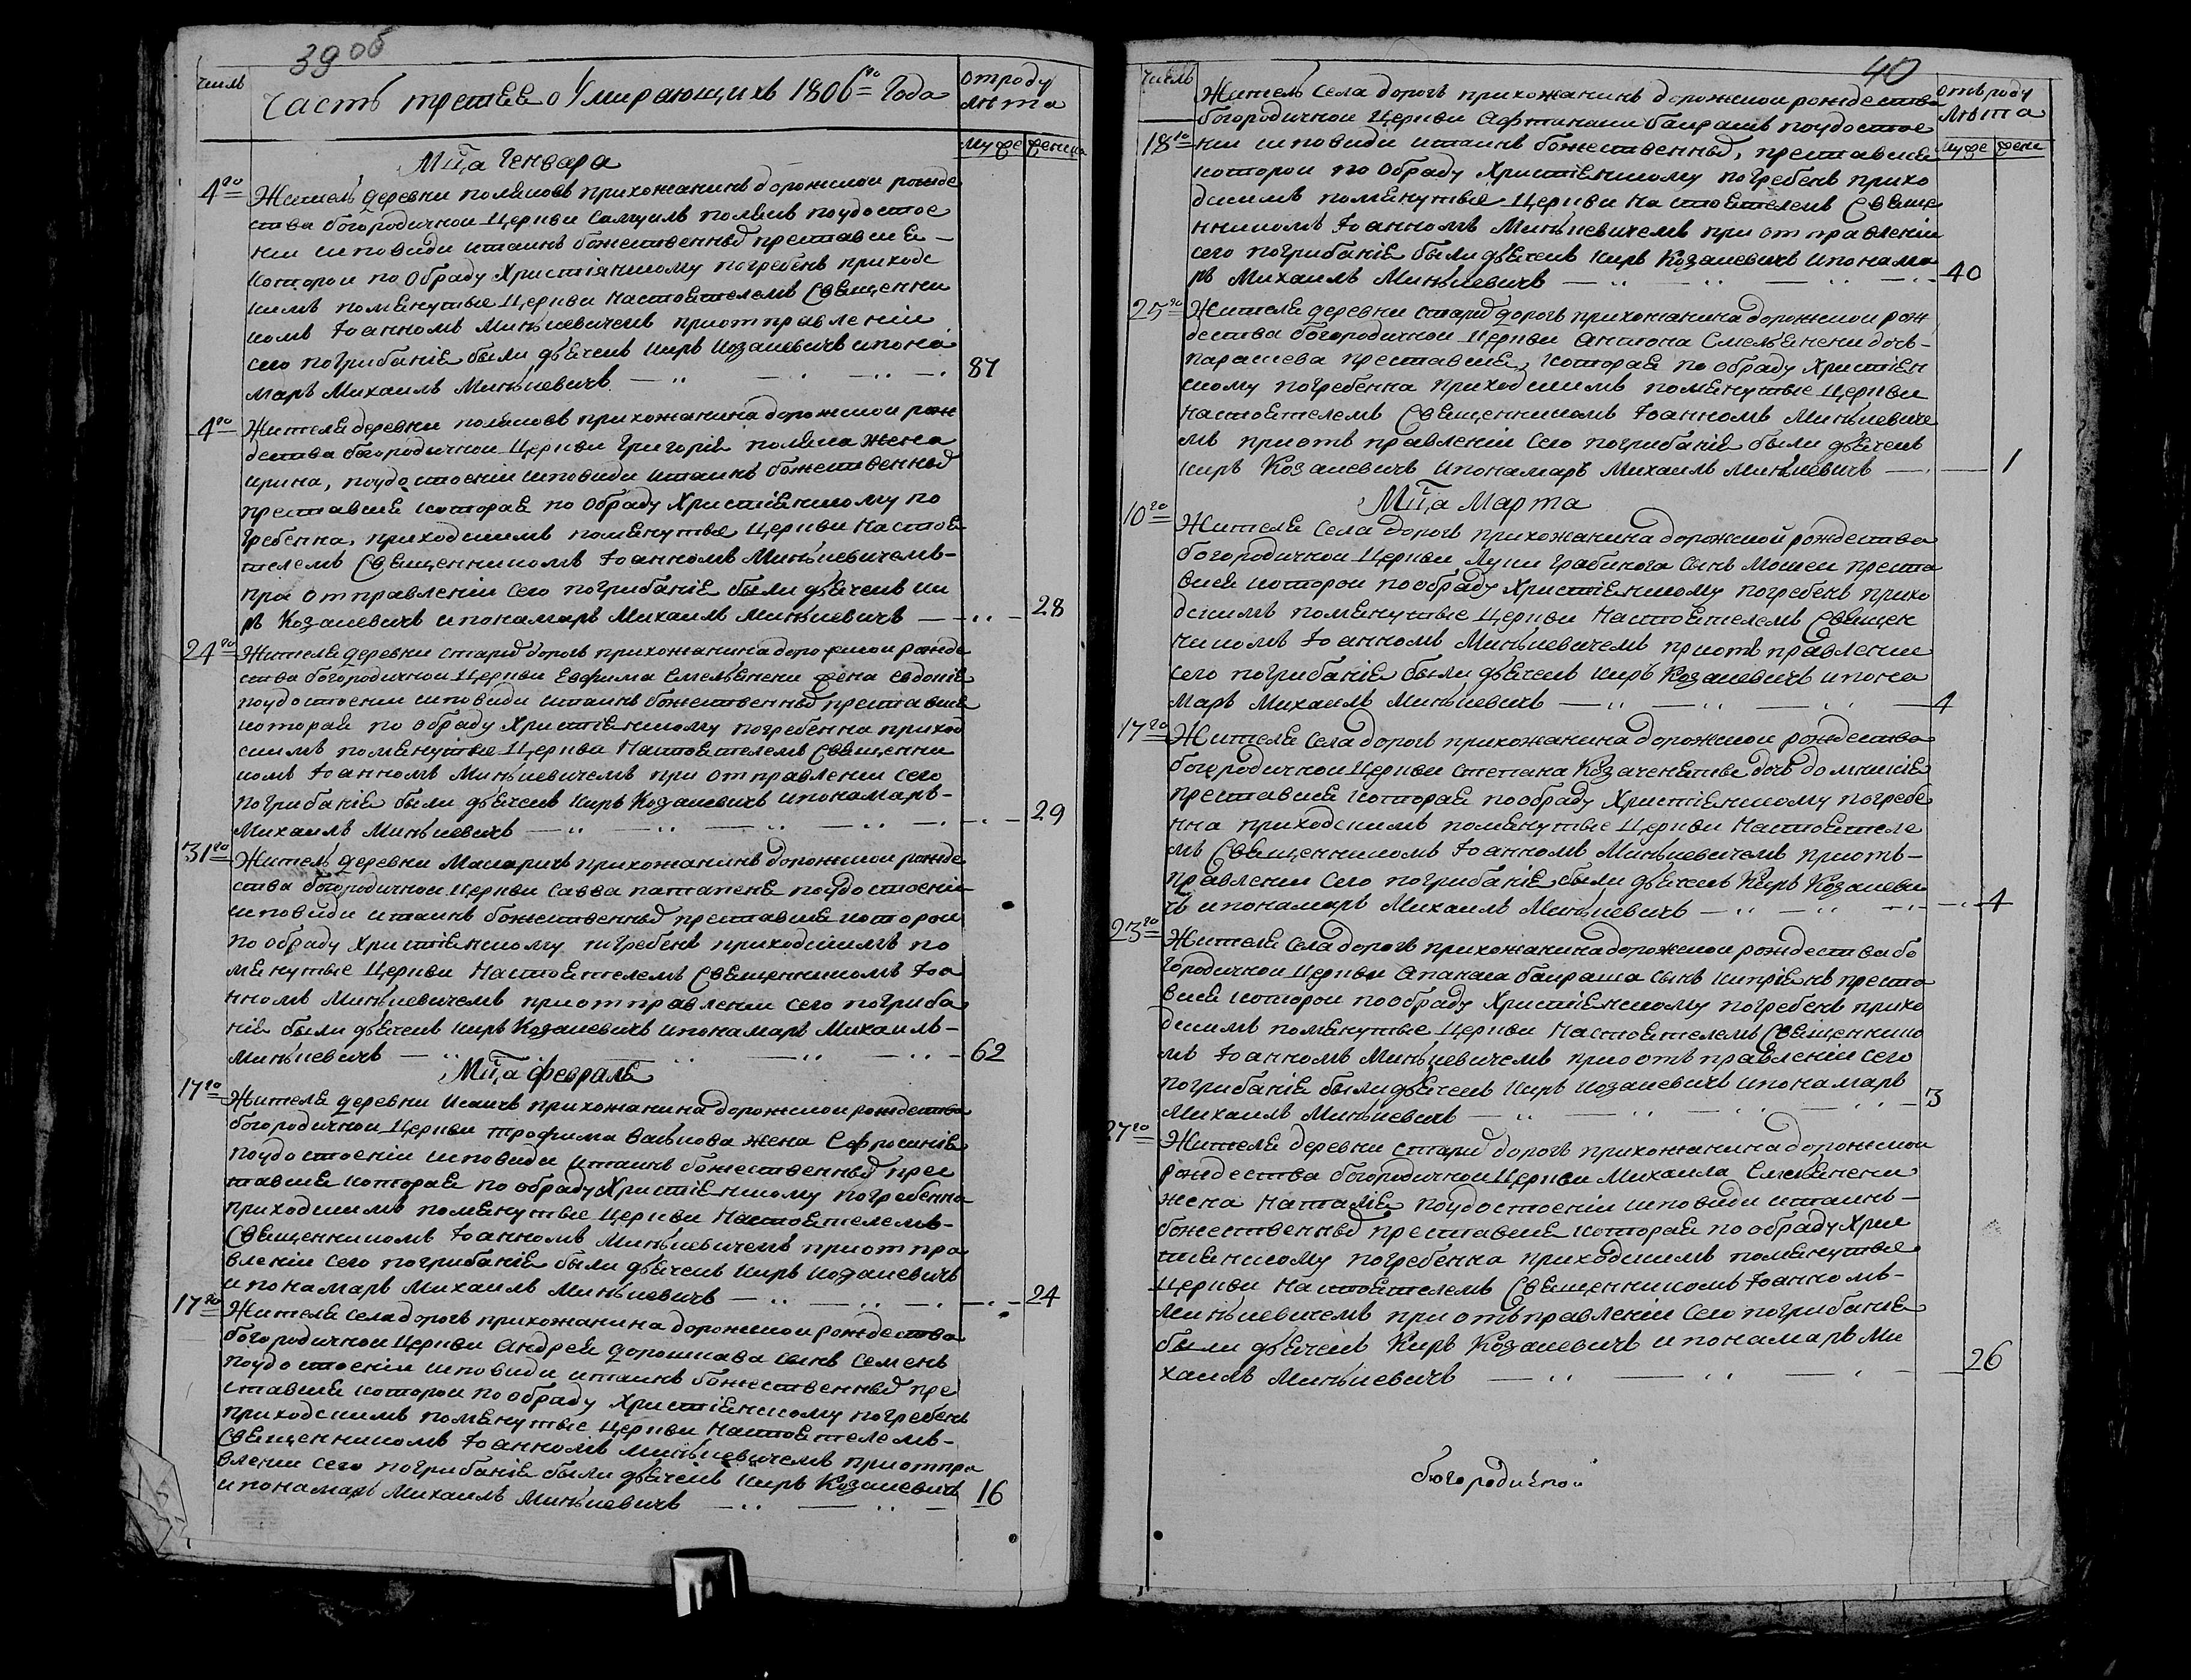 39 об
числь
Часть третее о Умирающихъ 1806го Года
отроду
лѣта
муже женска
Мца Генвара
4го Житель деревни поляковъ прихожанинъ дорожской рожде
ства богородичной Церкви Самуилъ полякъ поудостое
нии исповиди итаинъ божественныхъ преставися
которой по обраду Христіянскому погребенъ приходс
кимъ помянутые Церкви настоятелемъ Священни
комъ Іоанномъ Минкевичемъ приотправленіи
сего погрибаніе были дьячекъ киръ козакевичъ ипоно
марь Михаилъ Минкевичъ 87
4го Жителя деревни поляковъ прихожанина дорожской рож
дества богородичной Церкви Григорія поляка жена
ирина, поудостоеніи исповиди итаинъ божественныхъ
преставися которая по обраду Христіянскому по
гребенна, приходскимъ помянутыя Церкви Настоя
телемъ Священникомъ Іоанномъ Минкевичемъ
при отправленіи сего погрибаніе были дьячекъ ки
ръ Козакевичъ ипонамарь Михаилъ Минкевичъ 28
24го Жителя деревни старид дорогъ прихожанина дорожской рожде
ства богородичной Церкви Евфима Емельянени жена евдокія
поудостоении исповиди итаинъ божественныхъ преставися
которая по обраду Христіянскому погребенна приход
скимъ помянутые Церкви Настоятелемъ Священни
комъ Іоанномъ Минкевичемъ при отправлении сего
погрибаніе были дьячекъ киръ Козакевичъ ипонамарь
Михаилъ Минкевичъ 29
31го Житель деревни Макаричъ прихожанинъ дорожской рожде
ства богородичной Церкви Савва патапеня поудостоеніи
исповиди итаинъ божественныхъ преставися которой
по обраду Христіянскому погребенъ приходскимъ по
мянутые Церкви Настоятелемъ Священникомъ Іоа
нномъ Минкевичемъ приотправлении сего погриба
ніе были дьячекъ киръ Козакевичъ ипонамарь Михаилъ
Минкевичъ 62
Мца февраля
17го Жителя деревни Исаичъ прихожанина дорожской рождества
богородичной Церкви трофима жена Софросинія
поудостоеніи исповиди итаинъ божественныхъ прес
тавися которая по обраду Христіянскому погребенна
приходскимъ помянутые Церкви Настоятелемъ
Священникомъ Іоанномъ Минкевичемъ приотпра
вленіи сего погрибаніе были дьячекъ киръ козакевичъ
ипонамарь Михаилъ Минкевичъ 24
17го Жителя села дорогъ прихожанина дорожской рождества
богородичной Церкви Андрея дорошкава сынъ Семенъ
поудостоеніи исповиди итаинъ божественныхъ пре
ставися которой по обраду Христіянскому погребенъ
приходскимъ помянутые Церкви Настоятелемъ
Священникомъ Іоанномъ Минкевичемъ приотпра
влении сего погрибаніе были дьячекъ киръ Козакевичъ
ипонамарь Михаилъ Минкевичъ 16
40
числь
отъроду
лѣта
муже жени
Житель Села дорогъ прихожанинъ дорожской рождества
богородичной Церкви Афтанаси баирашъ поудостое
18го нии исповиди итаинъ божественныхъ, преставися
которой по обраду Христіянскому погребенъ прихо
дскимъ помянутые Церкви настоятелемъ Свяще
нникомъ Іоанномъ Минкевичемъ при отправленіи
сего погрибаніе были дьячекъ киръ Козакевичъ ипонама
ръ Михаилъ Минкевичъ 40
25го Жителя деревни старид дорогъ прихожанина дорожской рож
дества богородичной Церкви Антона Емельянени дочь
парасцева преставися, которая по обраду Христіян
скому погребенна приходскимъ помянутые Церкви
настоятелемъ Священникомъ Іоанномъ Минкевиче
мъ приотъправленіи сего погрибаніе были дьячекъ
киръ Козакевичъ ипонамаръ Михаилъ Минкевичъ 1
Мца Марта
10го Жителя Села дорогъ прихожанина дорожской рождества
богородичной Церкви Луки грабинога сынъ Мошеи преста
вися которой пообраду Христіянскому погребенъ прихо
дскимъ помянутые Церкви Настоятелемъ Священ
никомъ Іоанномъ Минкевичемъ приотъправлении
сего погрибаніе были дьячекъ киръ Козакевичъ ипона
марь Михаилъ Минкевичъ 4
17го Жителя Села дорогъ прихожанина дорожской рождества
богородичной Церкви степана дочь домникія
преставися которая пообраду Христіянскому погребе
нна приходскимъ помянутые Церкви Настоятеле
мъ Священникомъ Іоанномъ Минкевичемъ приотъ
правлении сего погрибаніе были дьячекъ Киръ Козакеви
чъ ипонамарь Михаилъ Минкевичъ 4
23го Жителя Села дорогъ прихожанина дорожской рождества бо
городичной Церкви Апанаса баираша сынъ киприянъ преста
вися которой пообраду Христіянскому погребенъ прихо
дскимъ помянутые Церкви Настоятелемъ Священнико
мъ Іоанномъ Минкевичемъ приотъправленіи сего
погрибаніе были дьячекъ киръ козакевичъ ипонамаръ
Михаилъ Минкевичъ 3
27го Жителя деревни старид дорогъ прихожанина дорожской
рождества богородичной Церкви Михаила Емельянени
жена Наталія поудостоеніи исповиди итаинъ
божественныхъ преставися которая по обраду Хрис
тиянскому погребенна приходскимъ помянутые
Церкви Настоятелемъ Священникомъ Іоанномъ
Минкевичемъ приотъправленіи сего погрибаніе
были дьячекъ Киръ Козакевичъ ипонамарь Ми
хаилъ Минкевичъ 26
богородичной